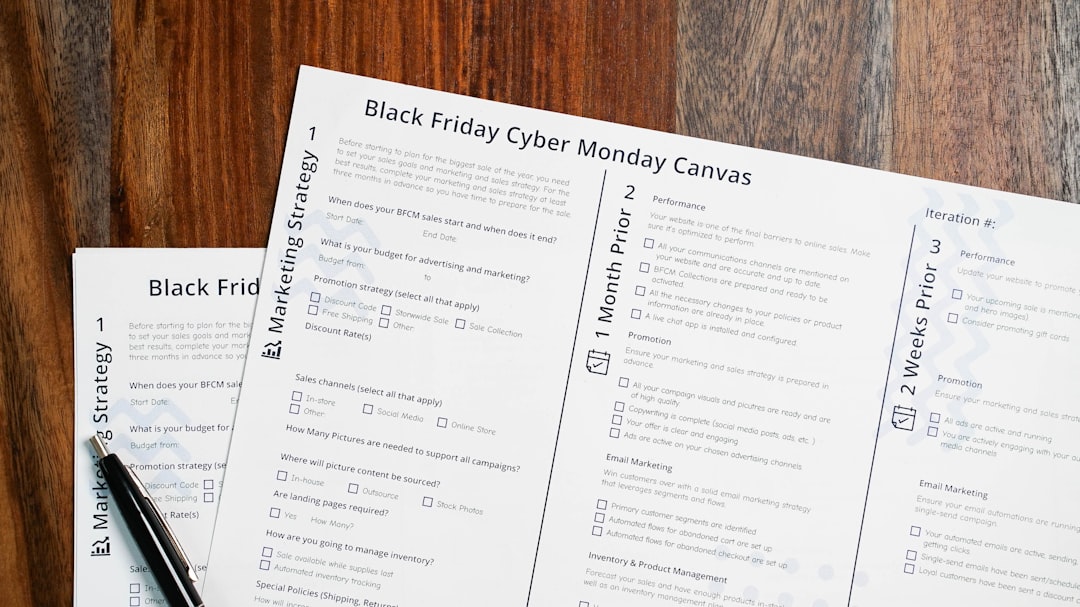 Black Friday Cyber Monday Canvas
1
Marketing Strategy
Before starting to plan for the biggest sale of the year, you need
to set your sales goals and marketing and sales strategy. For the
best results, complete your marketing and sales strategy at least
three months in advance so you have time to prepare for the sale.
When does your BFCM sales start and when does it end?
Start Date:
End Date:
What is your budget for advertising and marketing?
Budget from:
to
Promotion strategy (select all that apply)
Discount Code
Storwwide Sale
Sale Collection
Free Shipping
Other:
Discount Rate(s)
Sales channels (select all that apply)
In-store
Social Media
Online Store
Other:
How Many Pictures are needed to support all campaigns?
Where will picture content be sourced?
In-house
Outsource
Stock Photos
Are landing pages required?
Yes
How Many?
How are you going to manage inventory?
Sale available while supplies last
Automated inventory tracking
Special Policies (Shipping, Returns
How will
2
1 Month Prior
Performance
Your website is one of the final barriers to online sales. Make
sure it's optimized to perform.
All your communications channels are mentioned on
your website and are accurate and up to date.
BFCM Collections are prepared and ready to be
activated.
All the necessary changes to your policies or product
information are already in place.
A live chat app is installed and configured.
Promotion
Ensure your marketing and sales strategy is prepared in
advance.
All your campaign visuals and picutres are ready and are
of high quality.
Copywriting is complete (social media posts, ads, etc. )
Your offer is clear and engaging
Ads are active on your chosen advertising channels.
Email Marketing
Win customers over with a solid email marketing strategy
that leverages segments and flows.
Primary customer segments are identified
Automated flows for abandoned cart are set up
Automated flows for abandoned checkout are set up
Inventory & Product Management
Forecast your sales and have enough products in-sto
well as an inventory management
Iteration #:
3
2 Weeks Prior
Performance
Update your website to promote
Your upcoming sale is mentioned
and hero images)
Consider promoting gift cards
Promotion
Ensure your marketing and sales strat
All ads are active and running
You are actively engaging with your au
media channels
Email Marketing
Ensure your email automations are running
single-send campaign.
Your automated emails are active, sending,
getting clicks.
Single-send emails have been sent/schedule
Loyal customers have been sent a discount
Black Frid
1
Marketing Strategy
Before starting to plan for the bi
to set your sales goals and mark
best results, complete your mar
three months in advance so yo
When does your BFCM sale
Start Date:
What is your budget for
Budget from:
Promotion strategy (se
Discount Code
Free Shipping
nt Rate(s)
Sales
(se
In-s
Other